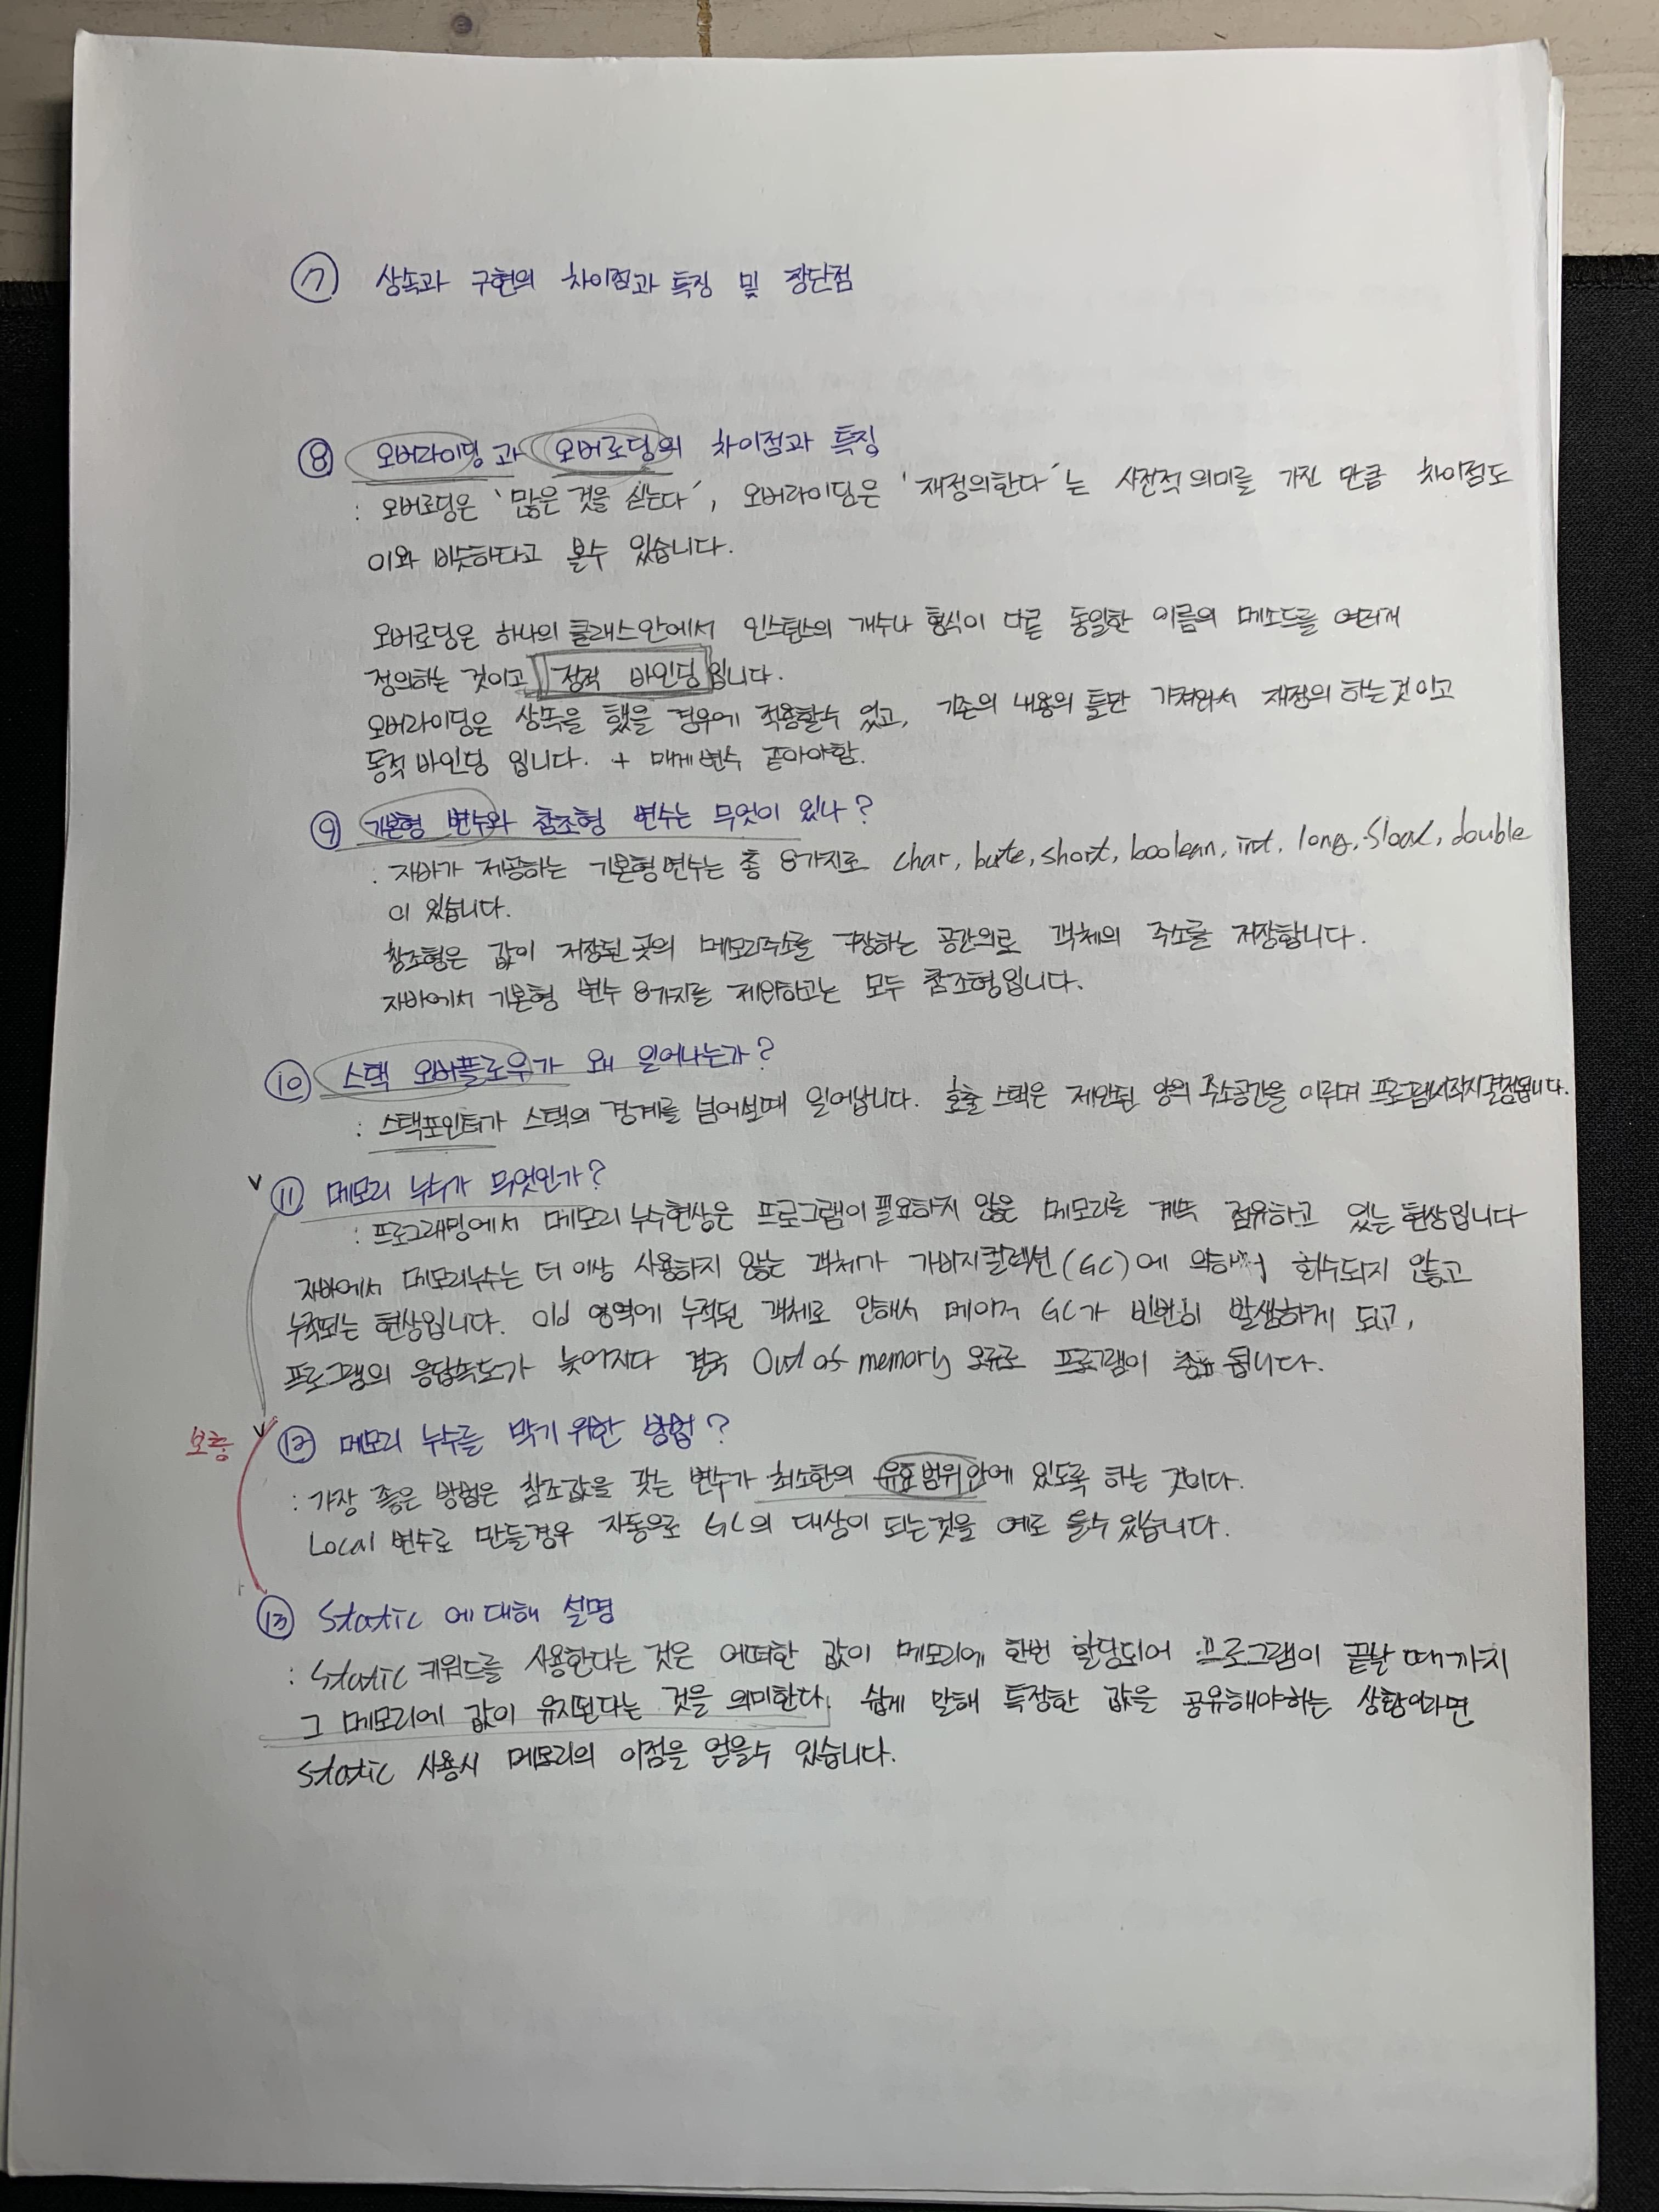 ⑦ 상속과 구현의 차이점과 특징 및 장단점
⑧ 오버라이딩과 오버로딩의 차이점과 특징
: 오버로딩은 '많은 것을 싣는다', 오버라이딩은 '재정의한다'는 사전적 의미를 가진 만큼 차이점도
이와 비슷하다고 볼수 있습니다.
오버로딩은 하나의 클래스안에서 인스턴스의 개수나 형식이 다른 동일한 이름의 메소드를 여러개
정의하는 것이고 정적 바인딩입니다.
오버라이딩은 상속을 했을 경우에 적용할수 있고, 기존의 내용의 틀만 가져와서 재정의 하는것이고
동적 바인딩 입니다. + 매개변수 같아야함.
⑨ 기본형 변수와 참조형 변수는 무엇이 있나?
: 자바가 제공하는 기본형변수는 총 8가지로 char, byte, short, boolean, int, long, float, double
이 있습니다.
참조형은 값이 저장된 곳의 메모리주소를 저장하는 공간으로 객체의 주소를 저장합니다.
자바에서 기본형 변수 8가지를 제외하고는 모두 참조형입니다.
⑩ 스택 오버플로우가 왜 일어나는가?
: 스택포인터가 스택의 경계를 넘어설때 일어납니다. 호출 스택은 제한된 양의 주소공간을 이루며 프로그램시작시결정됩니다.
v ⑪ 메모리 누수가 무엇인가?
: 프로그래밍에서 메모리 누수현상은 프로그램이 필요하지 않은 메모리를 계속 점유하고 있는 현상입니다
자바에서 메모리누수는 더 이상 사용하지 않는 객체가 가비지컬렉션(GC)에 의해서 회수되지 않고
누적되는 현상입니다. Old 영역에 누적된 객체로 인해서 메이저 GC가 빈번히 발생하게 되고,
프로그램의 응답속도가 늦어지다 결국 Out of memory 오류로 프로그램이 종료 됩니다.
보충 v ⑫ 메모리 누수를 막기 위한 방법?
: 가장 좋은 방법은 참조값을 갖는 변수가 최소한의 유효범위안에 있도록 하는 것이다.
Local 변수로 만들경우 자동으로 GC의 대상이 되는것을 예로 들수있습니다.
⑬ Static 에 대해 설명
: Static 키워드를 사용한다는 것은 어떠한 값이 메모리에 한번 할당되어 프로그램이 끝날 때까지
그 메모리에 값이 유지된다는 것을 의미한다. 쉽게 말해 특정한 값을 공유해야하는 상황이라면
Static 사용시 메모리의 이점을 얻을수 있습니다.